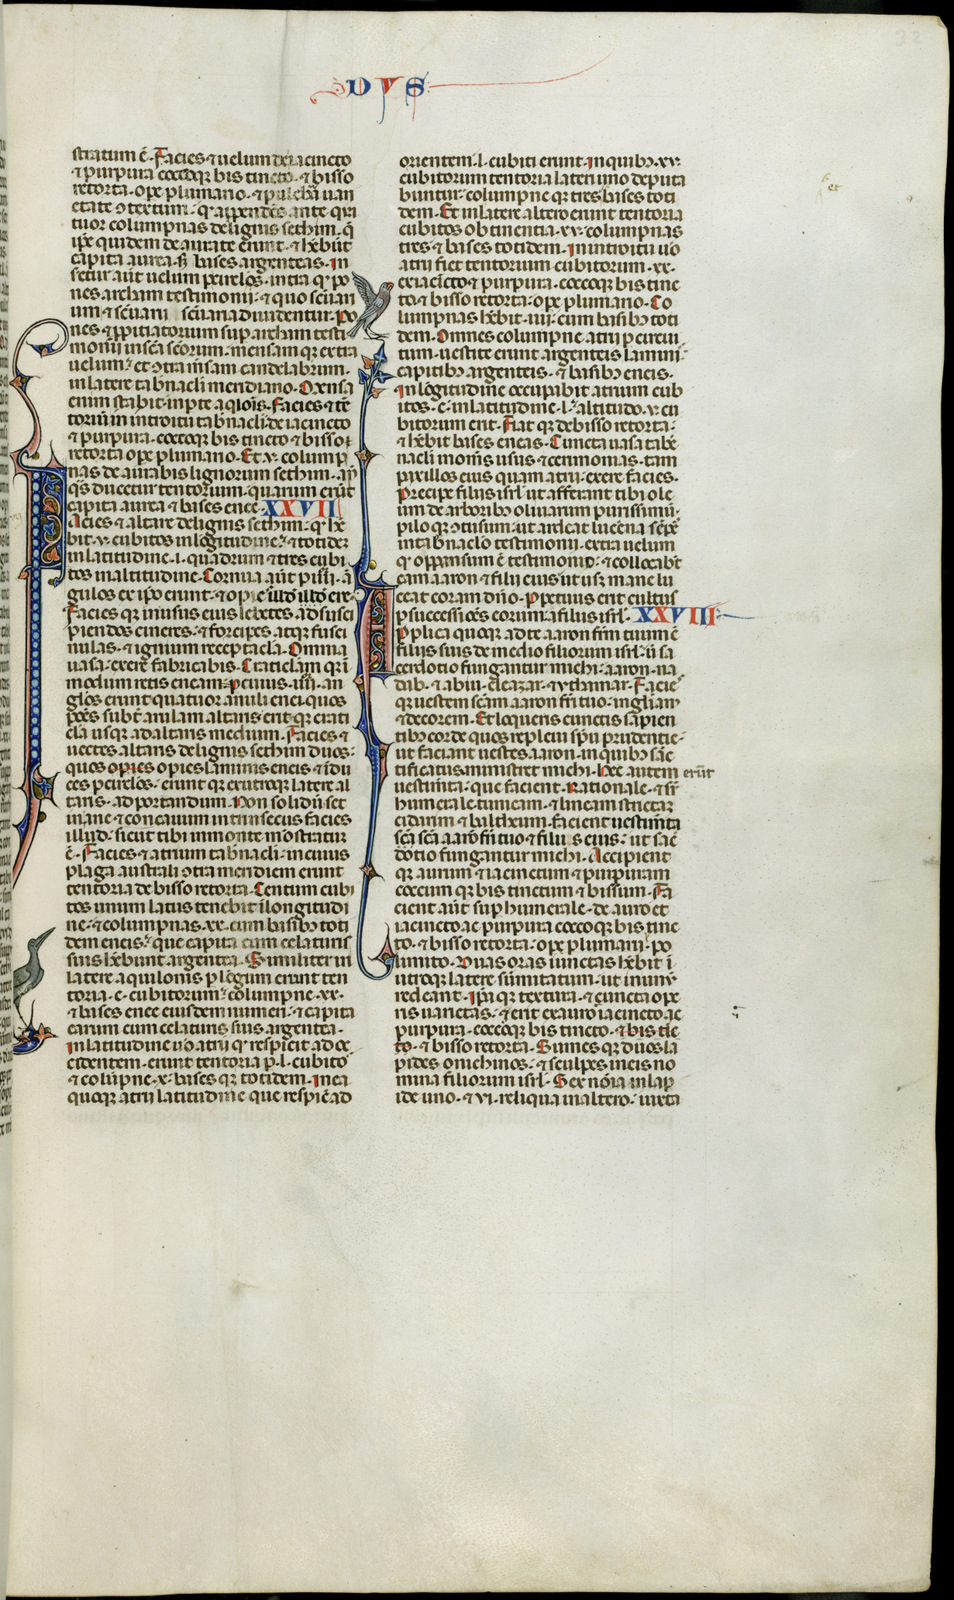 32
DVS
stratum ē. Facies & uelum de iacincto
& purpura coccoq̧ bis tincto. & bisso
retorta. ope plumario. & pulchā uari
etate ɔtextum. qđ appendes ante qua
tuor columpnas de lignis sethim. q̄
ipe quidem deaurate erunt. & hēbūt
capita aurea. sȝ bases argenteas. In
seretur aūt uelum p circlos. intra qđ po
nes archam testimonii. & quo scūari
um & scūarii scūaria diuidentur. Po
nes & ppitiatorium sup archam testi
monii in scā scorum. mensam q̧ extra
uelum. et ɔtra msam candelabrum.
in latere tabnacli meridiano. Mensa
enim stabit in pte aqlois. Facies & tē
torium in introitu tabnacli de iacincto
& purpura. coccoq̧ bis tincto & bisso r
retorta ope plumario. Et v. colump
nas deaurabis lignorum sethim. an̄
q̄s ducetur tentorium. quarum erūt
capita aurea & bases enee. XXVII
Facies & altare de lignis sethim. qđ hē
bit. v. cubitos in lōgitudine. & totidē
in latitudine. i. quadrum & tres cubi
tos in altitudine. Cornua aūt p iiii. ā
gulos ex ipo erunt. & opies illđ illđ ere.
Facies q̧ in usus eius lebetes. ad susci
piendos cineres. & forcipes atq̧ fusci
nulas. & ignium receptacla. Omnia
uasa. ex ere fabricabis. Craticlam q̧ ī
modum retis eneam. p cuius. iiii. an
glos erunt quatuor anuli enei. quos
pōes subt arulam altaris. erit q̧ crati
cla usq̧ ad altaris medium. Facies &
uectes altaris de lignis sethim duos.
quos opies opies laminis eneis. & īdu
ces p circlos. erunt q̧ ex utroq̧ latere al
taris. ad portandum. Non solidū set
inane & concauum intrinsecus facies
illud. sicut tibi in monte mōstratū
ē. Facies & atrium tabnacli. in cuius
plaga australi ɔtra meridiem erunt
tentoria de bisso retorta. Centum cubi
tos unum latus tenebit ī longitudi
ne. & columpnas. xx. cum basibȝ toti
dem eneis. que capita cum celaturis
suis hēbunt argentea. Similiter in
latere aquilonis p lōgum erunt ten
toria. c. cubitorum. columpne. xx.
& bases enee eiusdem numeri. & capita
earum cum celaturis suis argentea.
In latitudine uō atrii qđ respicit ad oc
cidentem. erunt tentoria p. l. cubitos
& colūpne. x. bases q̧ totidem. In ea
quoq̧ atrii latitudine que respicit ad
orientem. l. cubiti erunt. In quibȝ. xv.
cubitorum tentoria lateri uno deputa
buntur. columpne q̧ tres & bases toti
dem. Et in latere altero erunt tentoria
cubitos obtinentia. xv. columpnas
tres. & bases totidem. In introitu uō
atrii fiet tentorium cubitorum. xx.
ex iacīcto & purpura. coccoq̧ bis tinc
to. & bisso retorta. ope plumario. Co
lumpnas hēbit. iiii. cum basibȝ toti
dem. Omnes columpne atrii p circui
tum. uestite erunt argenteis laminis
capitibȝ argenteis. & basibȝ eneis.
In lōgitudine occupabit atrium cub
itos. c. in latitudine. l. altitudo. v. cu
bitorum erit. Fiat q̧ de bisso retorta.
& hēbit bases eneas. Cuncta uasa tabē
nacli in omīs usus & cerimonias. tam
paxillos eius quam atrii. ex ere facies.
Precipe filiis isrl. ut afferant tibi ole
um de arboribȝ oliuarum purissimū.
piloq̧ ɔtusum. ut ardeat lucerna sēpē
in tabnaclo testimonii. extra uelum
qđ oppansum ē testimonio. & collocabt
eam aaron & filii eius. ut usq̧ mane lu
ceat coram dn̄o. Ppetuus erit cultus
p successiōes eorum. a filiis isrl. XXVIII
Applica quoq̧ ad te aaron frm tuum cū
filiis suis de medio filiorum isrl. ut sa
cerdotio fungantur michi. aaron. na
dab. & abiu. eleazar. & ythamar. Facies
q̧ uestem scam aaron fri tuo. in gliam
& decorem. Et loqueris cunctis sapien
tibȝ corde quos repleui spū prudentie.
ut faciant uestes aaron. in quibȝ sāc
tificatus ministret michi. Hec autem erūt
uestimta. que facient. Rationale. & sū
humerale. tunicam. & lineam strictā
cidarim & baltheum. Facient uestimta
scā scā aarō fri tuo & filiis eius. ut sac
dotio fungantur michi. Accipient
q̧ aurum & iacinctum & purpuram
coccum q̧ bis tinctum & bissum. Fa
cient aūt sup humerale. de auro et
iacincto ac purpura coccoq̧ bis tinc
to. & bisso retorta. ope plumarii po
limito. Duas oras iunctas hēbit ī
utroq̧ latere sūmitatum. ut in unū
redeant. Ipa q̧ textura. & cuncta ope
ris uarietas. & erit ex auro iacincto ac
purpura. coccoq̧ bis tincto. & bis tīc
to. & bisso retorta. Sumes q̧ duos la
pides onichinos. & sculpes in eis no
mina filiorum isrl. Sex noīa in lap
ide uno. & vi. reliqua in altero. iuxta